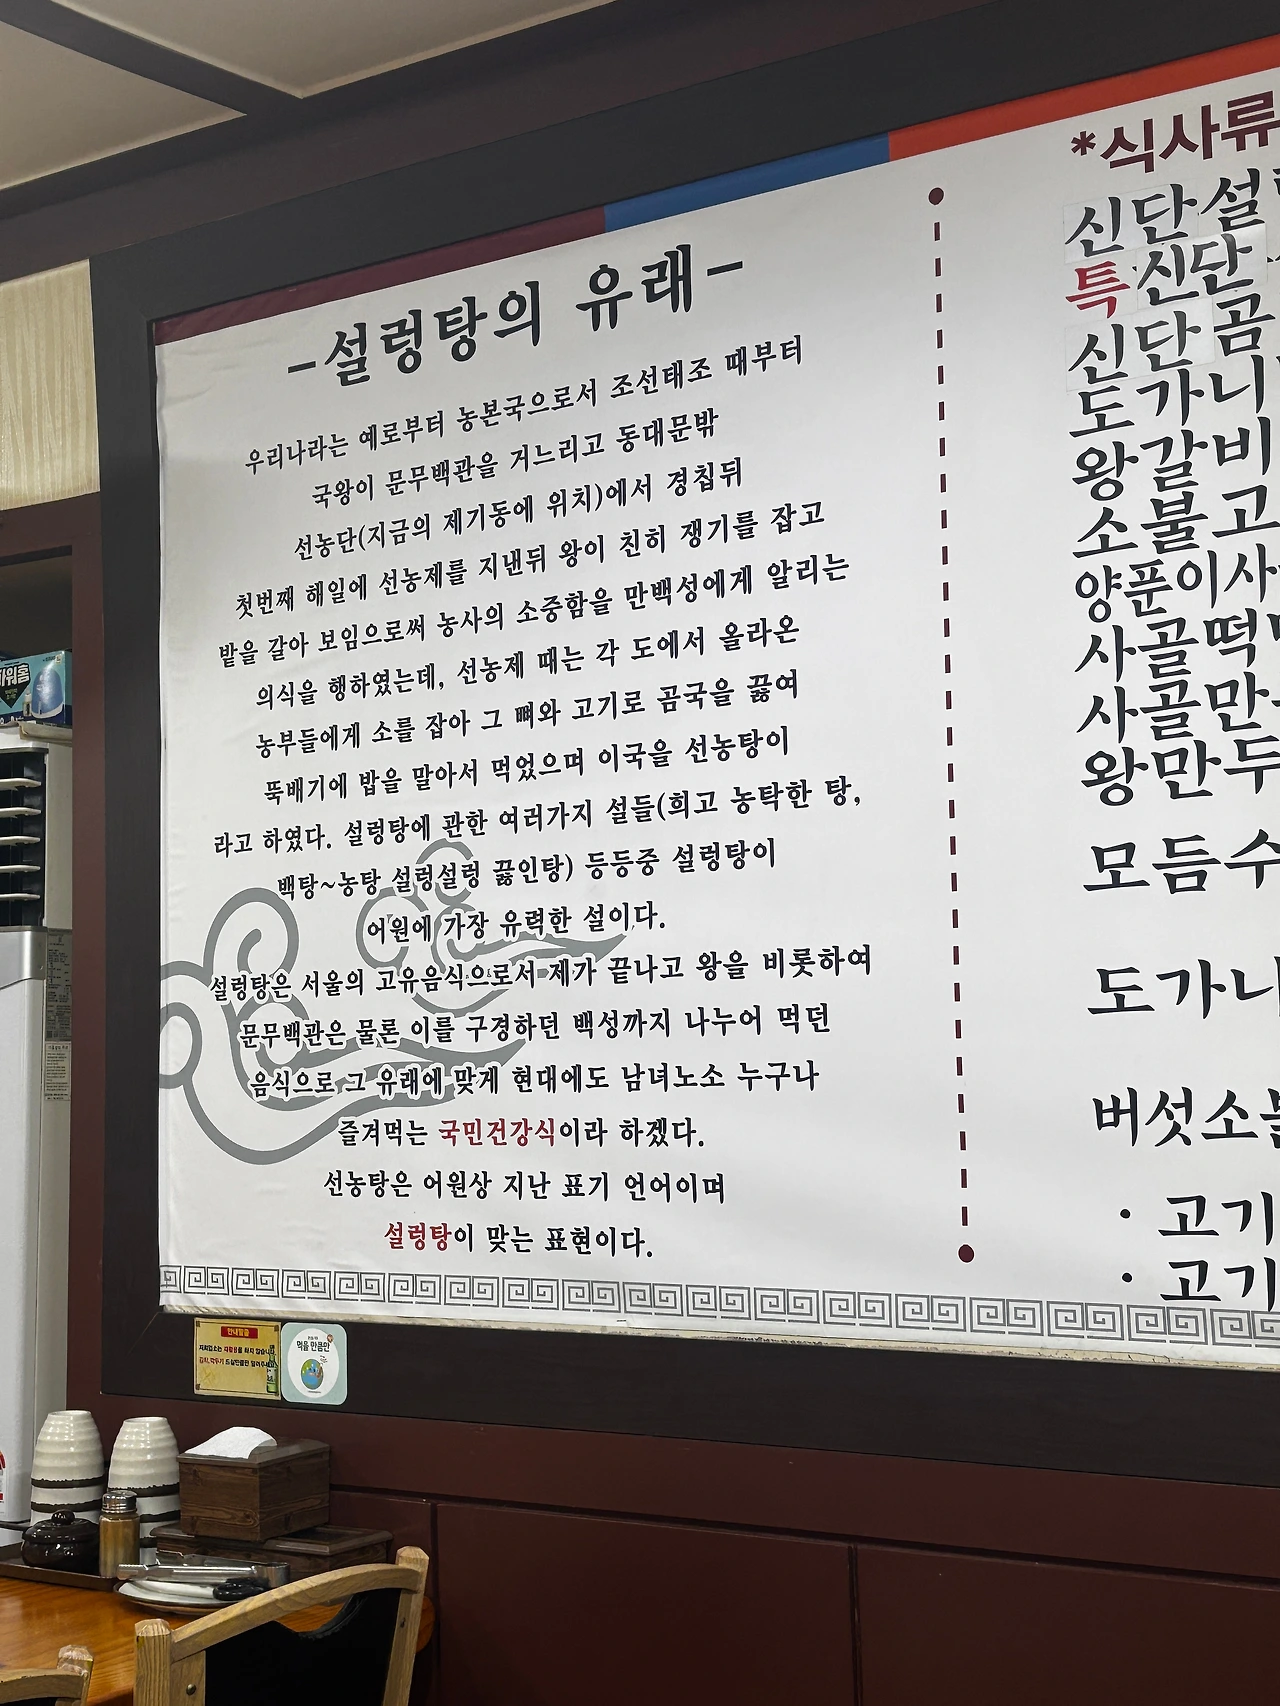 -설렁탕의 유래-
우리나라는 예로부터 농본국으로서 조선태조 때부터
국왕이 문무백관을 거느리고 동대문밖
선농단(지금의 제기동에 위치)에서 경칩뒤
첫번째 해일에 선농제를 지낸뒤 왕이 친히 쟁기를 잡고
밭을 갈아 보임으로써 농사의 소중함을 만백성에게 알리는
의식을 행하였는데, 선농제 때는 각 도에서 올라온
농부들에게 소를 잡아 그 뼈와 고기로 곰국을 끓여
뚝배기에 밥을 말아서 먹었으며 이국을 선농탕이
라고 하였다. 설렁탕에 관한 여러가지 설들(희고 농탁한 탕,
백탕~농탕 설렁설렁 끓인탕) 등등중 설렁탕이
어원에 가장 유력한 설이다.
설렁탕은 서울의 고유음식으로서 제가 끝나고 왕을 비롯하여
문무백관은 물론 이를 구경하던 백성까지 나누어 먹던
음식으로 그 유래에 맞게 현대에도 남녀노소 누구나
즐겨먹는 국민건강식이라 하겠다.
선농탕은 어원상 지난 표기 언어이며
설렁탕이 맞는 표현이다.
*식사류
신단 설
특 신단
신단 곰
도가니
왕갈비
소불고
양푼이사
사골떡
사골만
왕만두
모듬수
도가니
버섯소불
· 고기
· 고기
파워홈
안내말씀
먹을 만큼만